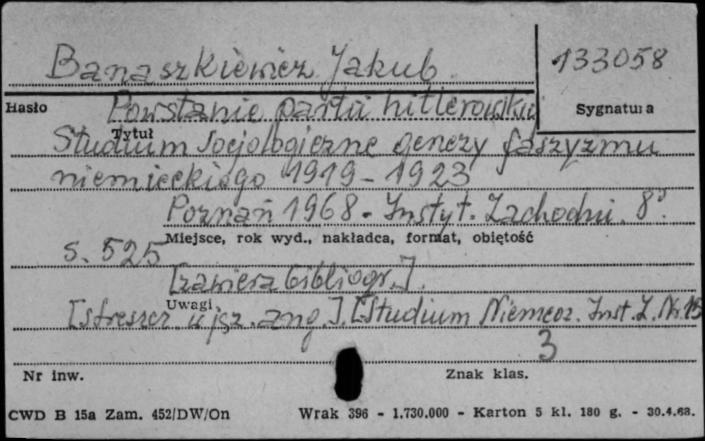 Banaszkiewicz Jakub.
133058
Hasło
Powstanie partii hitlerowskiej
Sygnatura
Tytuł
Studium socjologiczne genezy faszyzmu
niemieckiego 1919-1923
Poznań 1968. Instyt. Zachodni. 8°.
Miejsce, rok wyd., nakładca, format, objętość
s. 525
[zawiera bibliogr.].
Uwagi
[streszcz. w jęz. ang.]. [Studium Niemcoz. Inst. Z. Nr. 15
3
Nr inw.
Znak klas.
CWD B 15a Zam. 452/DW/On
Wrak 396 - 1.730.000 - Karton 5 kl. 180 g. - 30.4.68.